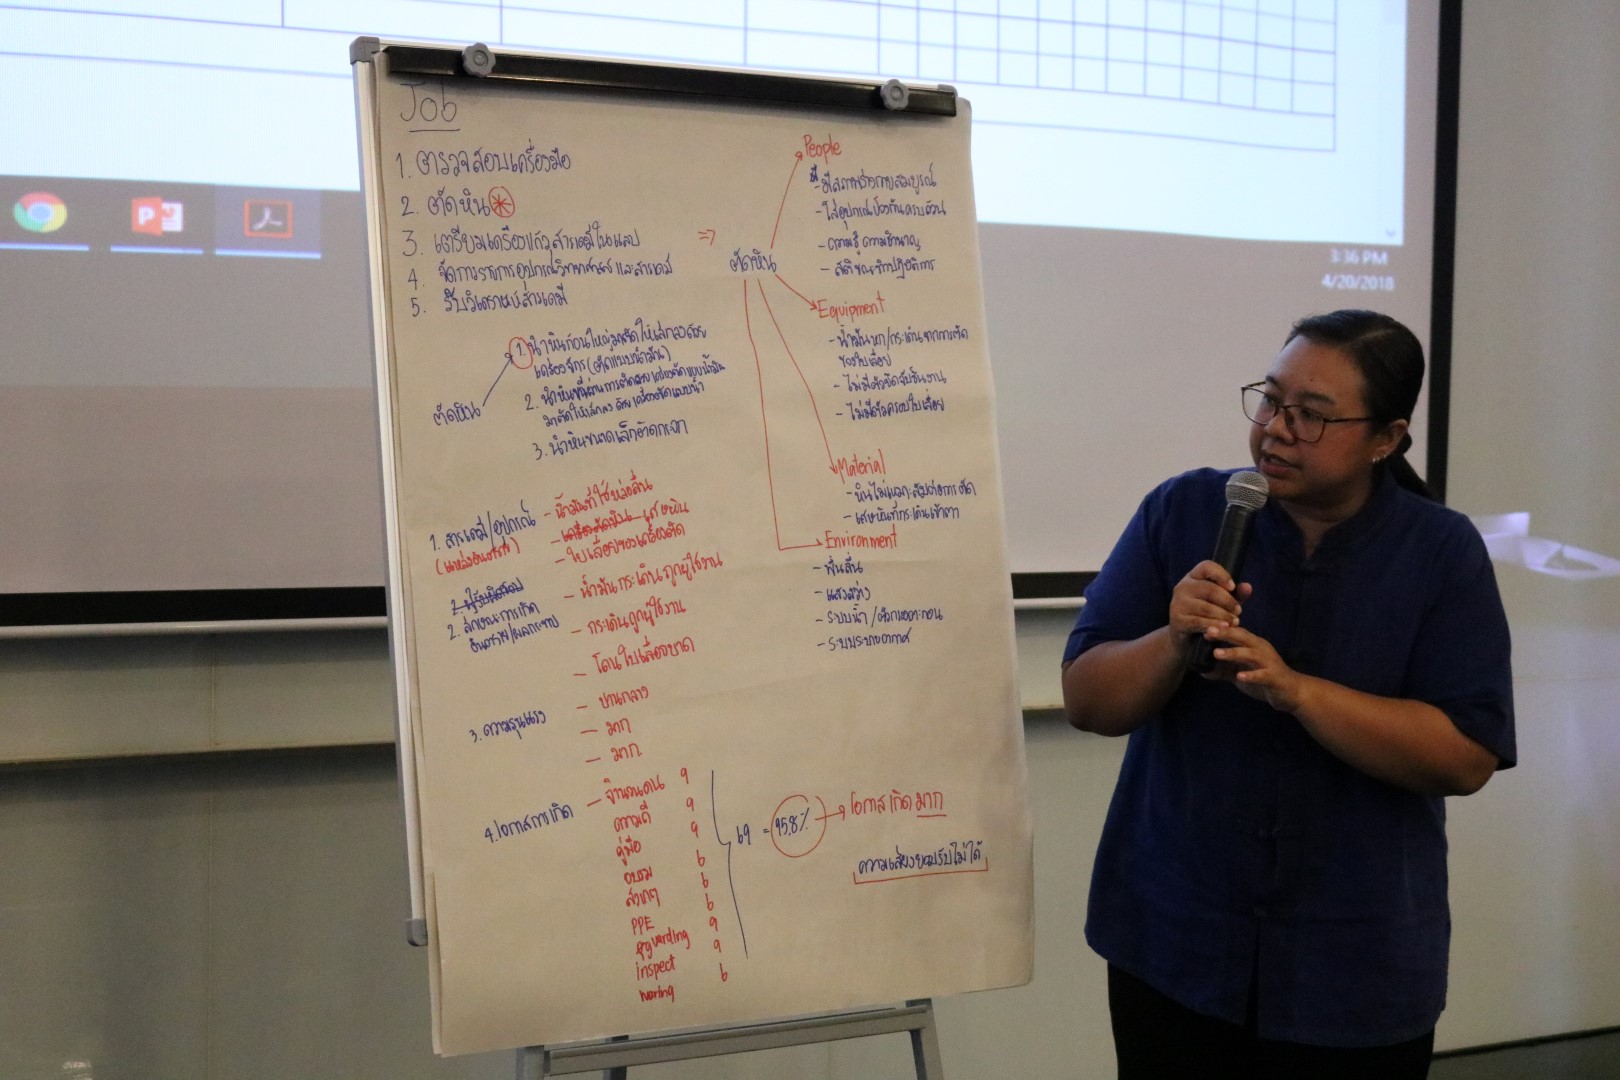 3:36 PM
4/20/2018
Job
1. ตรวจสอบเครื่องมือ
2. ตัดหิน
3. เตรียมเครื่องแก้ว สารเคมีในแลป
4. จัดการรายการอุปกรณ์วิทยาศาสตร์ และสารเคมี
5. รับวิเคราะห์สารเคมี
ตัดหิน
1. นำหินก้อนใหญ่มาตัดให้เล็กลงด้วย
เครื่องจักร (ตัดแบบน้ำมัน)
2. นำหินที่ผ่านการตัดด้วยเครื่องตัดแบบน้ำมัน
มาตัดให้เล็กลง ด้วยเครื่องตัดแบบน้ำ
3. นำหินขนาดเล็กติดกระจก
1. สารเคมี/อุปกรณ์
(แหล่งอันตราย)
- น้ำมันที่ใช้หล่อลื่น
- เศษหิน
- ใบเลื่อยของเครื่องตัด
2. ลักษณะการเกิด
อันตราย/ผลกระทบ
- น้ำมันกระเด็นถูกผู้ใช้งาน
- กระเด็นถูกผู้ใช้งาน
- โดนใบเลื่อยบาด
3. ความรุนแรง
- ปานกลาง
- มาก
- มาก
4. โอกาสการเกิด
- จำนวนคน 9
ความถี่ 9
คู่มือ 9
อบรม 6
6
PPE 6
guarding 9
inspect 9
waring 6
69 = 95.8% → โอกาสเกิดมาก
ความเสี่ยงยอมรับไม่ได้
⇒ ตัดหิน
People
- มีสภาพร่างกายสมบูรณ์
- ใส่อุปกรณ์ป้องกันครบถ้วน
- ความรู้ ความชำนาญ
- สติขณะทำปฏิบัติการ
Equipment
- น้ำมันหก/กระเด็นจากการตัด
ของใบเลื่อย
- ไม่มีตัวจับชิ้นงาน
- ไม่มีตัวครอบใบเลื่อย
Material
- หินไม่เหมาะสมต่อการตัด
- เศษหินที่กระเด็นเข้าตา
Environment
- พื้นลื่น
- แสงสว่าง
- ระบบน้ำ/ดักตะกอน
- ระบบระบายอากาศ